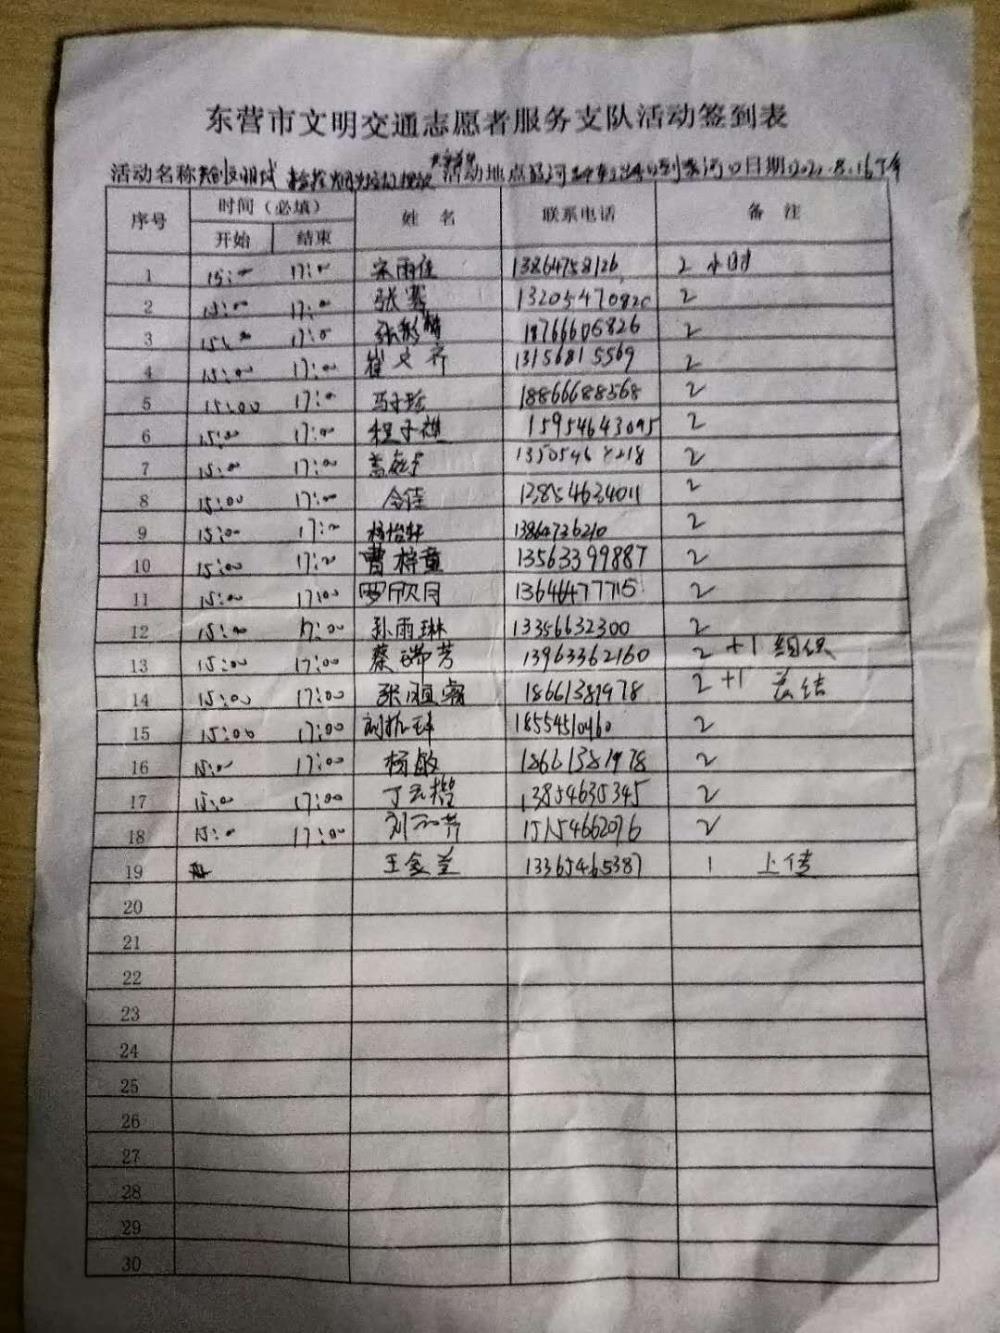 东营市文明交通志愿者服务支队活动签到表
活动名称 活动地点 日期 8.16下午
序号 时间（必填） 姓名 联系电话 备注
开始 结束
1 15:00 17:00 宋雨佳 13864758126 2小时
2 15:00 17:00 张骞 13205470820 2
3 15:00 17:00 张 18766606826 2
4 15:00 17:00 崔文齐 13156815569 2
5 15:00 17:00 马子 18866688568 2
6 15:00 17:00 程子祺 15954643095 2
7 15:00 17:00 2
8 15:00 17:00 13854634011 2
9 15:00 17:00 杨怡轩 13864736210 2
10 15:00 17:00 曹梓童 13563399887 2
11 15:00 17:00 罗欣月 13646477715 2
12 15:00 17:00 孙雨琳 13356632300 2
13 15:00 17:00 蔡瑞芳 13963362160 2+1 组织
14 15:00 17:00 张 18661381978 2+1 总结
15 15:00 17:00 刘 18554510460 2
16 15:00 17:00 杨敏 18661381978 2
17 15:00 17:00 丁 13854635345 2
18 15:00 17:00 刘 15154662076 2
19 王金兰 13365465387 1 上传
20
21
22
23
24
25
26
27
28
29
30